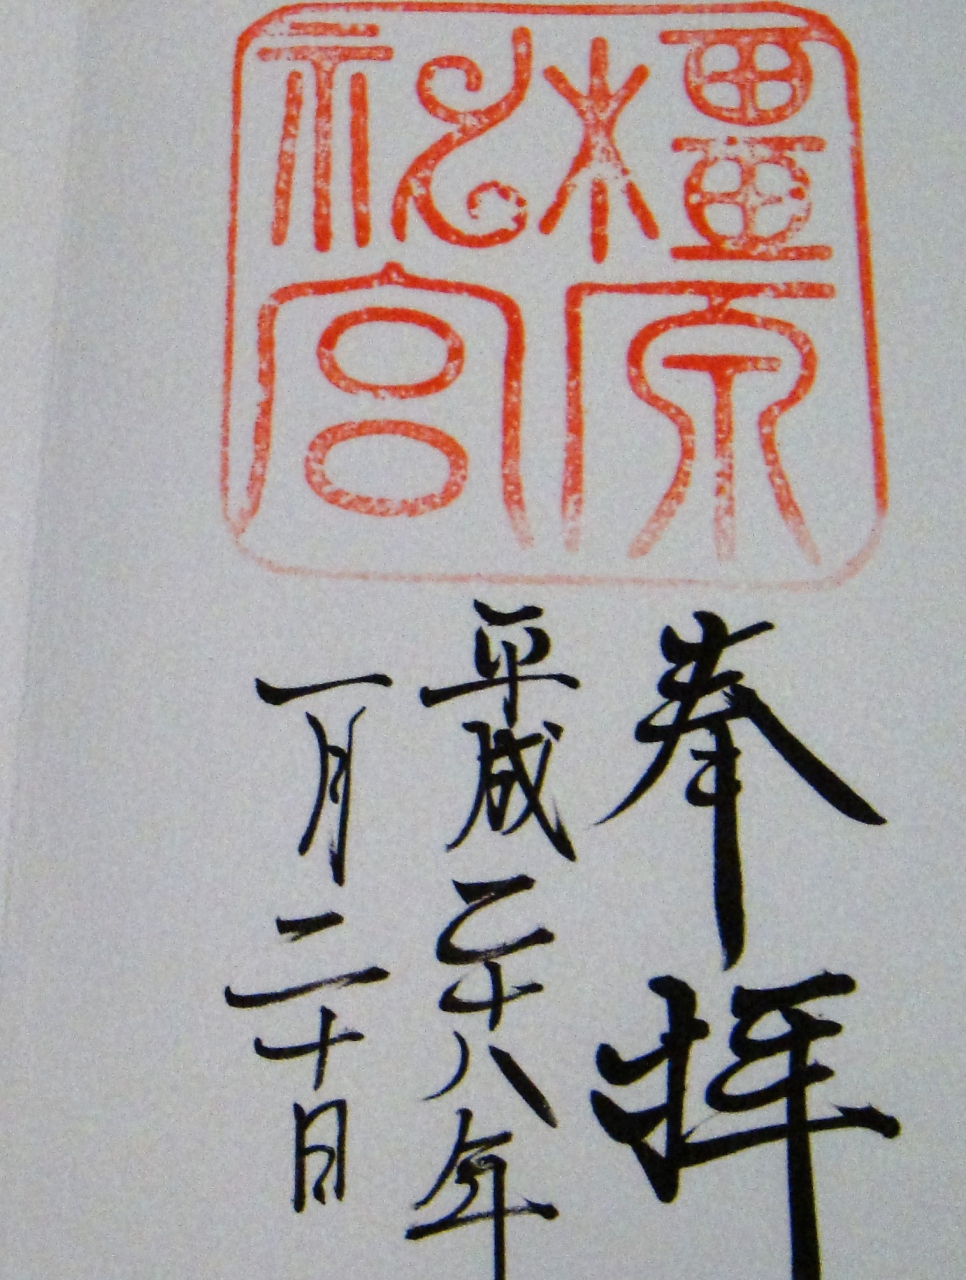 橿原
神宮
奉拝
平成二十八年
一月二十日